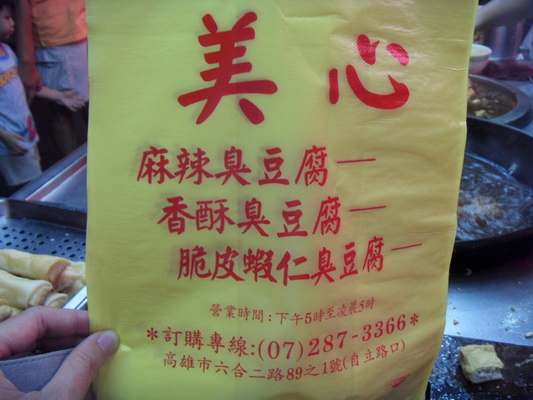 美心
麻辣臭豆腐—
香酥臭豆腐—
脆皮蝦仁臭豆腐—
營業時間:下午5時至凌晨5時
*訂購專線:(07)287-3366*
高雄市六合二路89之1號(自立路口)